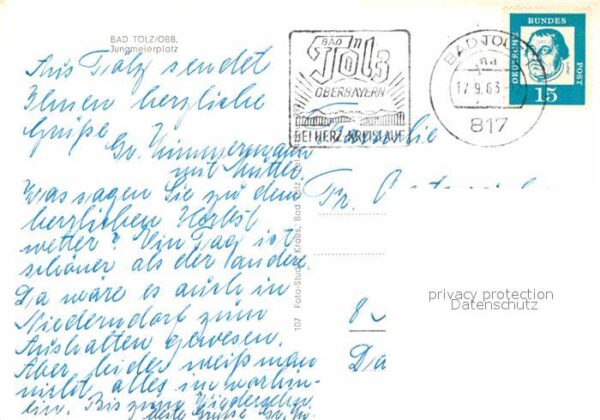 BAD TÖLZ/OBB.
Jungmeierplatz
Aus Tölz sendet
Ihnen herzliche
Grüße
Zimmermann
mit Mutter.
Was sagen Sie zu dem
herzlichen Herbst
wetter? Ein Tag ist
schöner als der andere.
Da wäre es auch in
Niederndorf zum
Aushalten gewesen.
Aber leider weiß man
nicht alles im vorhin-
ein. Bis zum Wiedersehen
Grüße
107 Foto-Studio Krabs, Bad Tölz
BAD
Tölz
OBERBAYERN
BEI HERZ-KREISLAUF
BAD TÖLZ
17.9.63
817
DEUTSCHE
BUNDES
POST
15
Familie
Fr.
8
Da
privacy protection
Datenschutz